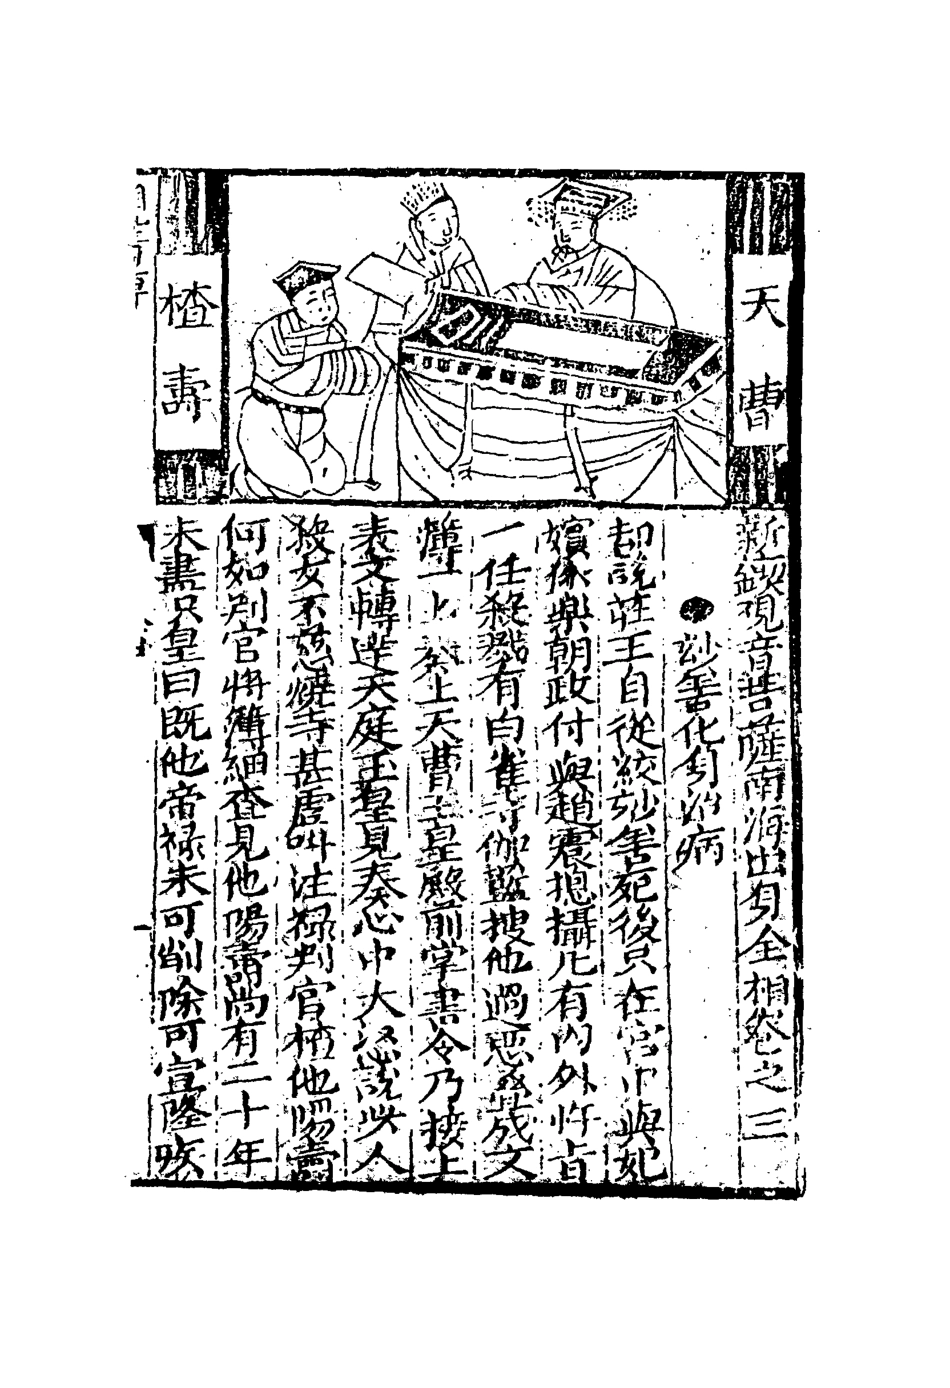 天曹
楂壽
新鋟觀音菩薩南海出身全相卷之三
妙善化身治病
却說莊王自從絞妙善死後只在宮中與妃
嬪後樂朝政付與趙震摠攝凡有內外忤旨
一任殺戮有白雀寺伽藍搜他過惡叠成文
簿一上奏上天曹玉皇殿前掌書令乃接上
表文轉進天庭玉皇見奏心中大怒說此人
殺女不慈燒寺甚虐叫注祿判官楂他陽壽
何如判官將簿細查見他陽壽尚有二十年
未盡只皇曰既他帝祿未可削除可宣隆疾